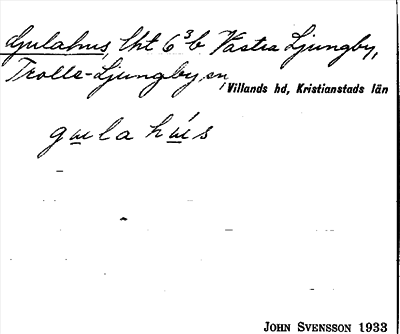 Gulahus, lht 6³b Västra Ljungby,
Trolle-Ljungby sn, Villands hd, Kristianstads län
gulahus
JOHN SVENSSON 1933